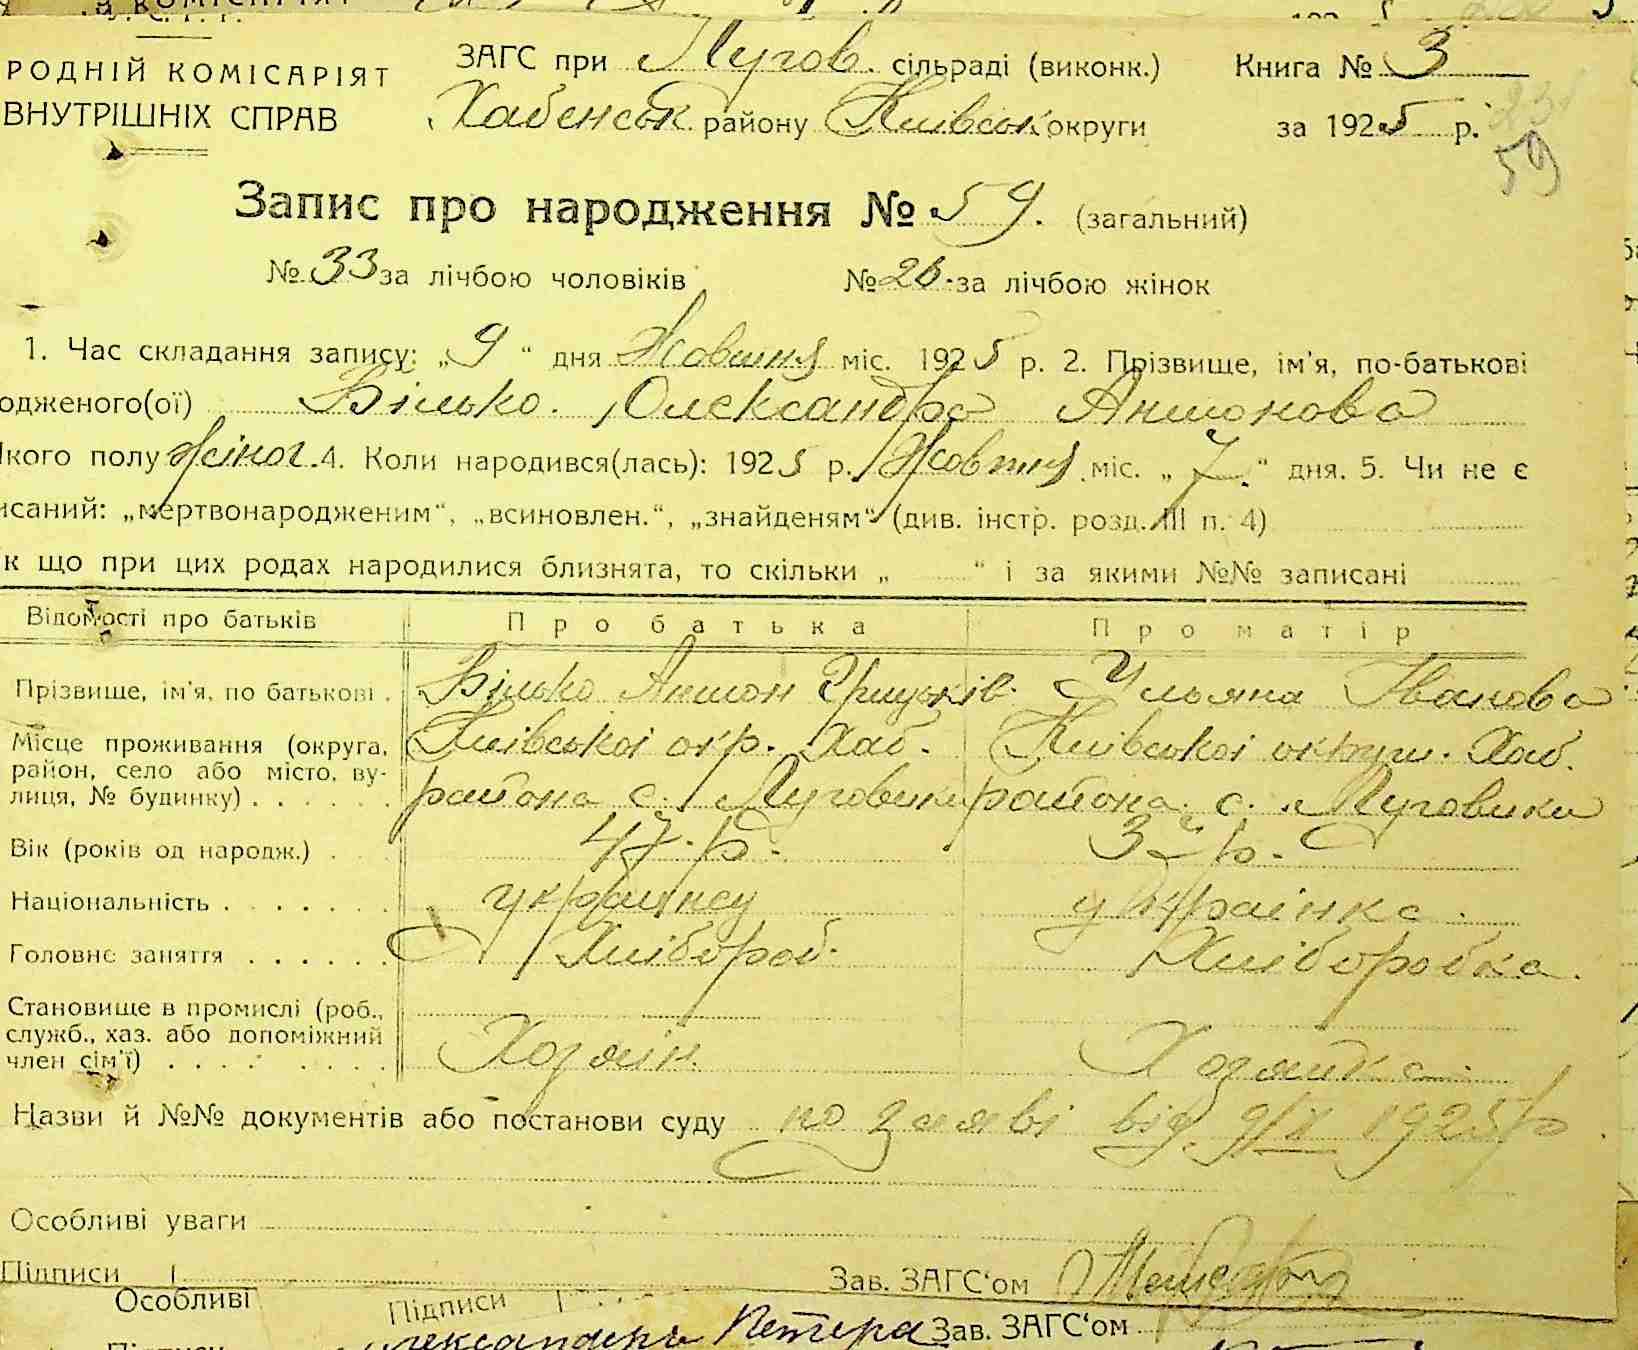 РОДНІЙ КОМІСАРІЯТ
ВНУТРІШНІХ СПРАВ
ЗАГС при Лугов. сільраді (виконк.) Книга № 3
Хабенськ району Київськ округи за 1925 р.
59
Запис про народження № 59. (загальний)
№ 33 за лічбою чоловіків № 26. за лічбою жінок
1. Час складання запису: „9“ дня Жовтня міс. 1925 р. 2. Прізвище, ім'я, по-батькові
одженого(ої) Білько. Олександра Антонова
кого полу жіноч. 4. Коли народився(лась): 1925 р. Жовтня міс. „7.“ дня. 5. Чи не є
исаний: „мертвонародженим“, „всиновлен.“, „знайденям“ (див. інстр. розд. III п. 4)
к що при цих родах народилися близнята, то скільки „ “ і за якими №№ записані
Відомості про батьків Про батька Про матір
Прізвище, ім'я, по батькові . Білько Антон Грицьків. Ульяна Іванова
Місце проживання (округа, район, село або місто, вулиця, № будинку) . . . . . . Київської окр. Хаб. района с. Луговики Київської округи. Хаб. района. с. Луговики
Вік (років од народж.) . . . 47.р. 37р.
Національність . . . . . . . українец українка.
Головне заняття . . . . . . Хлібороб. Хліборобка.
Становище в промислі (роб., служб., хаз. або допоміжний член сім'ї) . . . . . . . . Хозяїн. Хозяйка.
Назви й №№ документів або постанови суду по заяві від 9/X 1925р.
Особливі уваги
Підписи Зав. ЗАГС‘ом
Особливі Підписи
Петера Зав. ЗАГС‘ом